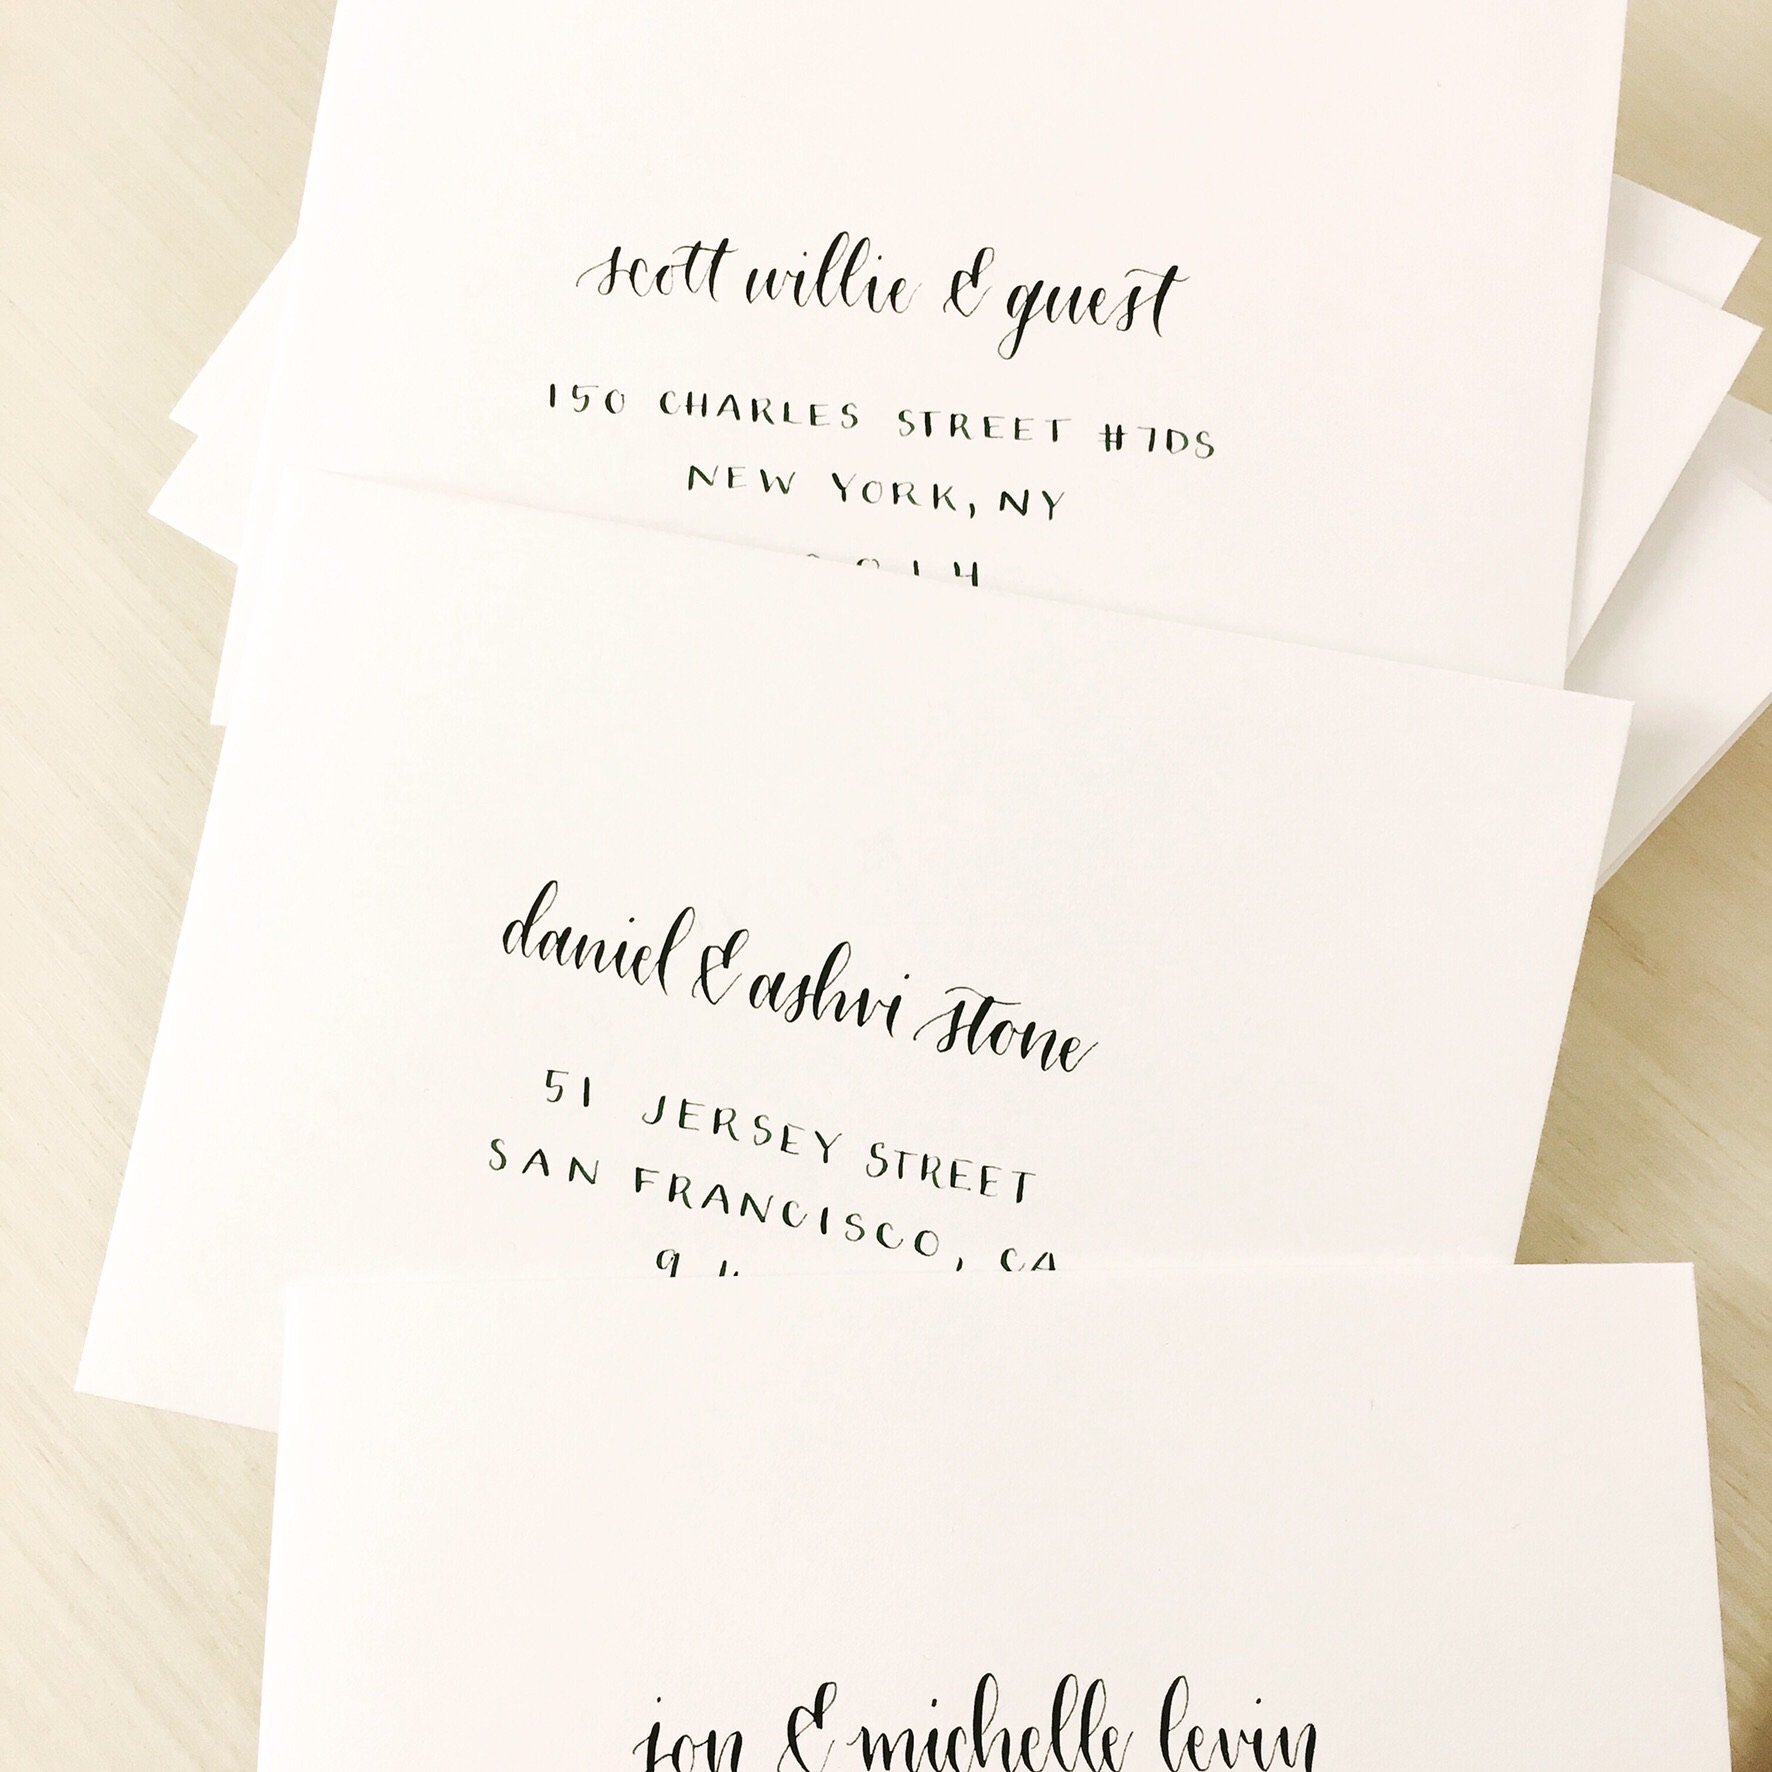 scott willie & guest
150 CHARLES STREET #7DS
NEW YORK, NY
daniel & ashvi stone
51 JERSEY STREET
SAN FRANCISCO, CA
jon & michelle levin